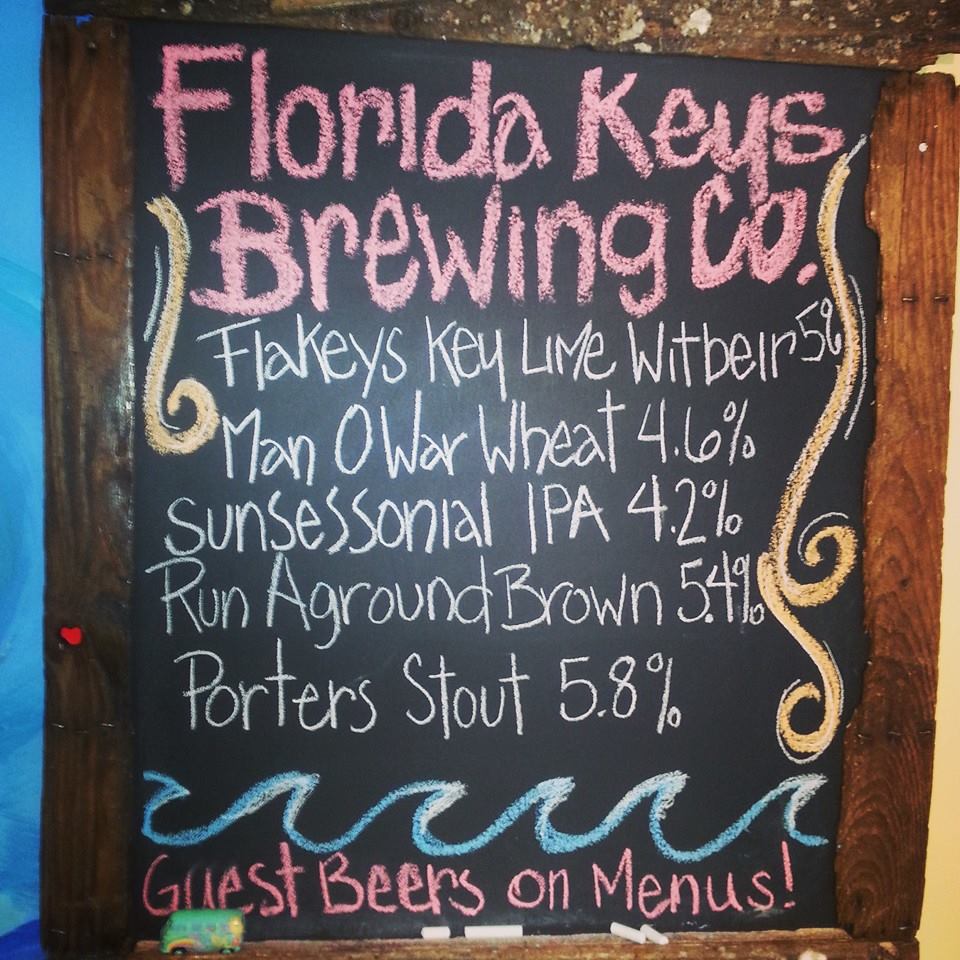 Florida Keys
Brewing Co.
Flakeys Key Lime Witbeir 5%
Man O War Wheat 4.6%
Sunsessonial IPA 4.2%
Run Aground Brown 5.4%
Porters Stout 5.8%
Guest Beers on Menus!